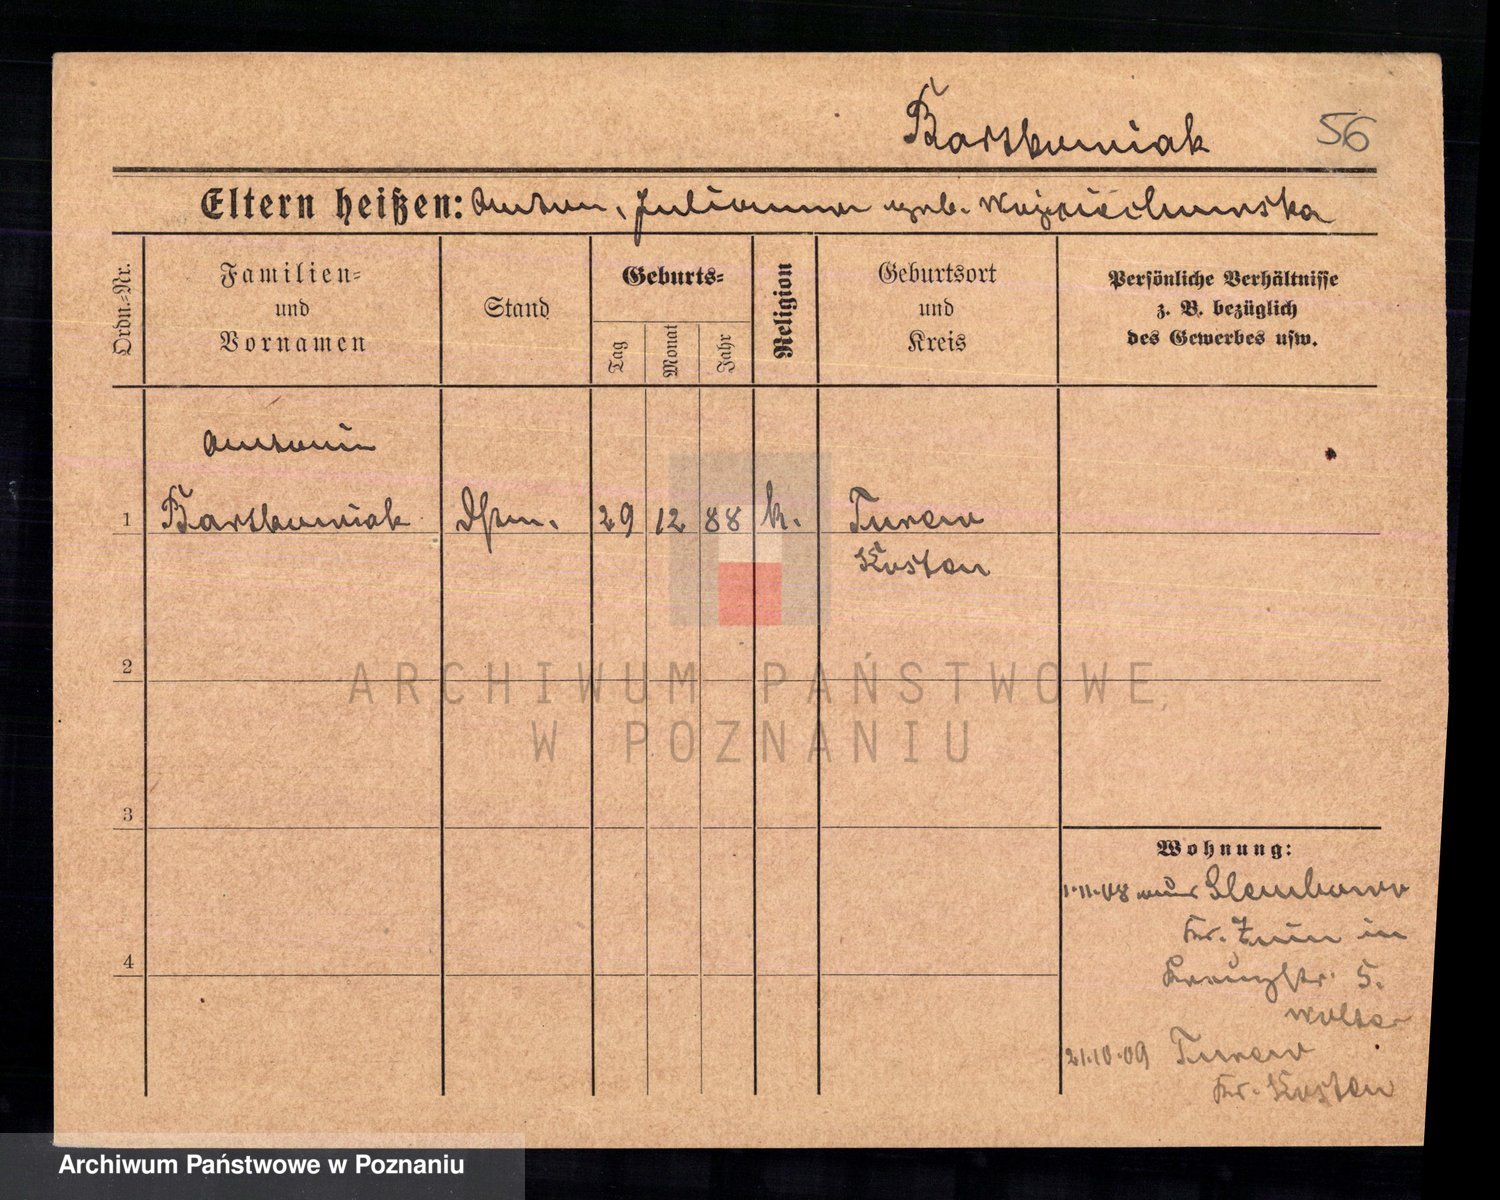 Bartkowiak 56
Eltern heißen: Anton, Julianna geb. Wojciechowska
Ordn.-Nr.
Familien-
und
Vornamen
Stand
Geburts-
Tag
Monat
Jahr
Religion
Geburtsort
und
Kreis
Persönliche Verhältnisse
z. B. bezüglich
des Gewerbes usw.
Antonie
1 Bartkowiak 29 12 88 k. Turew
Kosten
2
3
4
Wohnung:
1.11.08 aus
Kr. Znin in
Kreuzstr. 5.
21.10.09 Turew
Kr. Kosten
ARCHIWUM PAŃSTWOWE
W POZNANIU
Archiwum Państwowe w Poznaniu